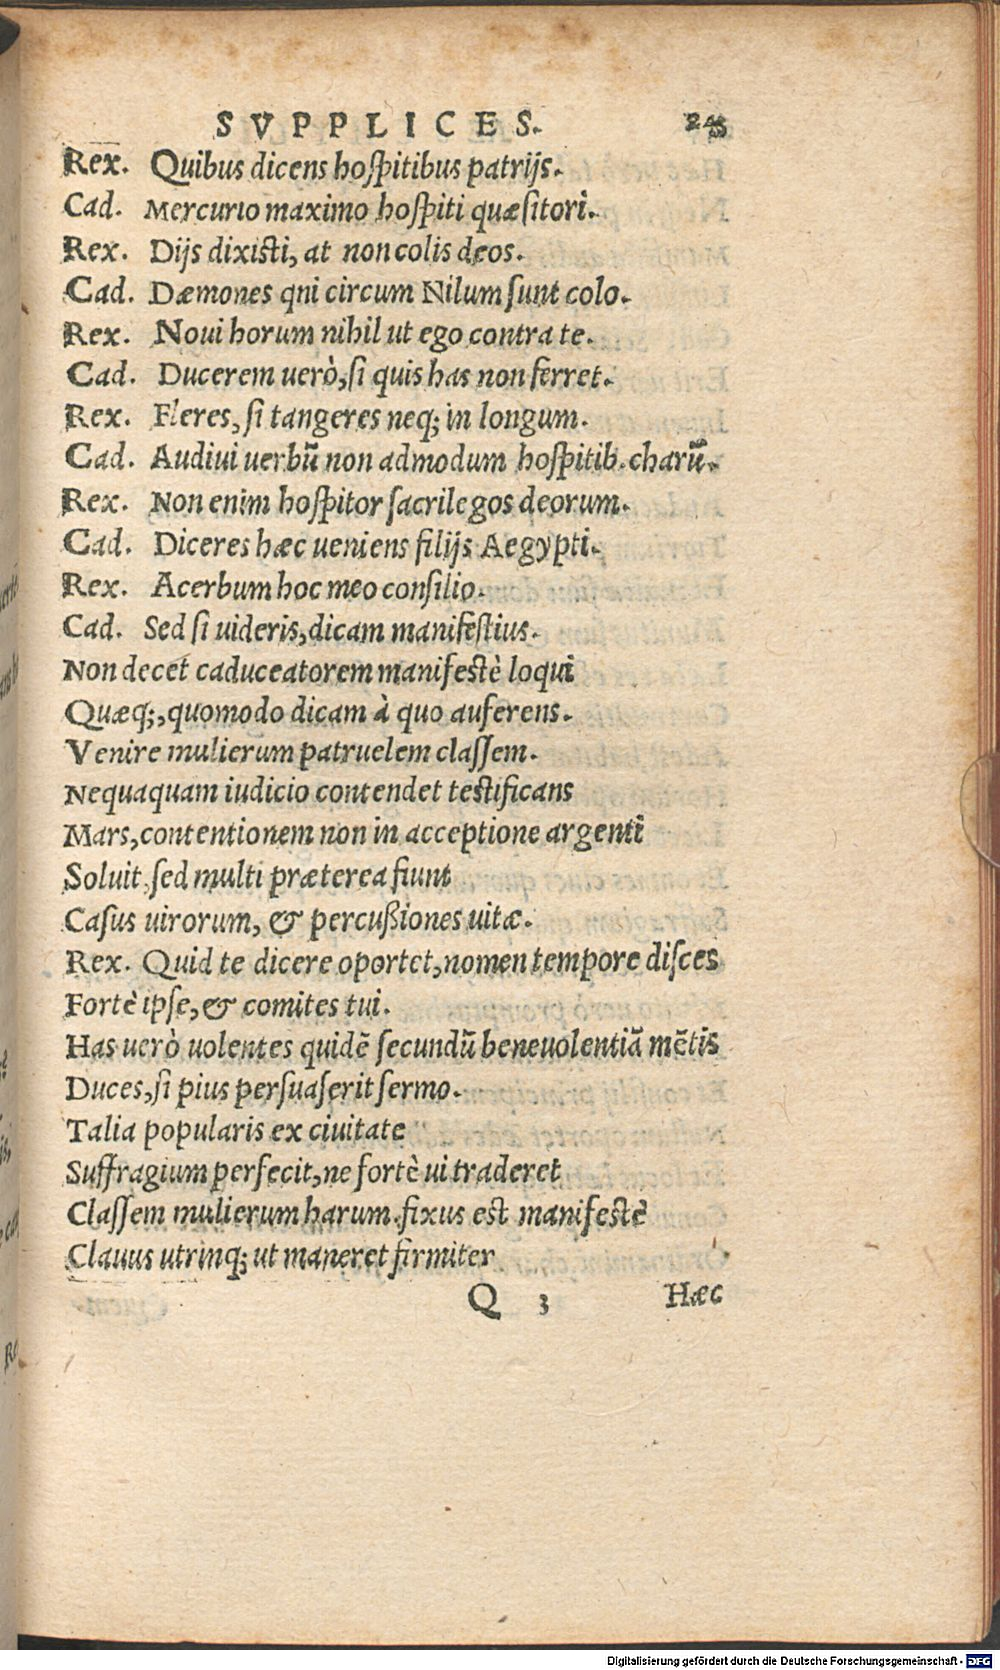 SVPPLICES. 245
Rex. Quibus dicens hospitibus patrijs.
Cad. Mercurio maximo hospiti quæsitori.
Rex. Dijs dixisti, at non colis deos.
Cad. Dæmones qni circum Nilum sunt colo.
Rex. Noui horum nihil ut ego contra te.
Cad. Ducerem uerò, si quis has non ferret.
Rex. Fleres, si tangeres neq; in longum.
Cad. Audiui uerbū non admodum hospitib. charū.
Rex. Non enim hospitor sacrilegos deorum.
Cad. Diceres hæc ueniens filijs Aegypti.
Rex. Acerbum hoc meo consilio.
Cad. Sed si uideris, dicam manifestius.
Non decet caduceatorem manifestè loqui
Quæq;, quomodo dicam à quo auferens.
Venire mulierum patruelem classem.
Nequaquam iudicio contendet testificans
Mars, contentionem non in acceptione argenti
Soluit, sed multi præterea fiunt
Casus uirorum, & percußiones uitæ.
Rex. Quid te dicere oportet, nomen tempore disces
Fortè ipse, & comites tui.
Has uerò uolentes quidē secundū beneuolentiā mētis
Duces, si pius persuaserit sermo.
Talia popularis ex ciuitate
Suffragium perfecit, ne fortè ui traderet
Classem mulierum harum. fixus est manifestè
Clauus utrinq; ut maneret firmiter
Q 3 Hæc
Digitalisierung gefördert durch die Deutsche Forschungsgemeinschaft - DFG